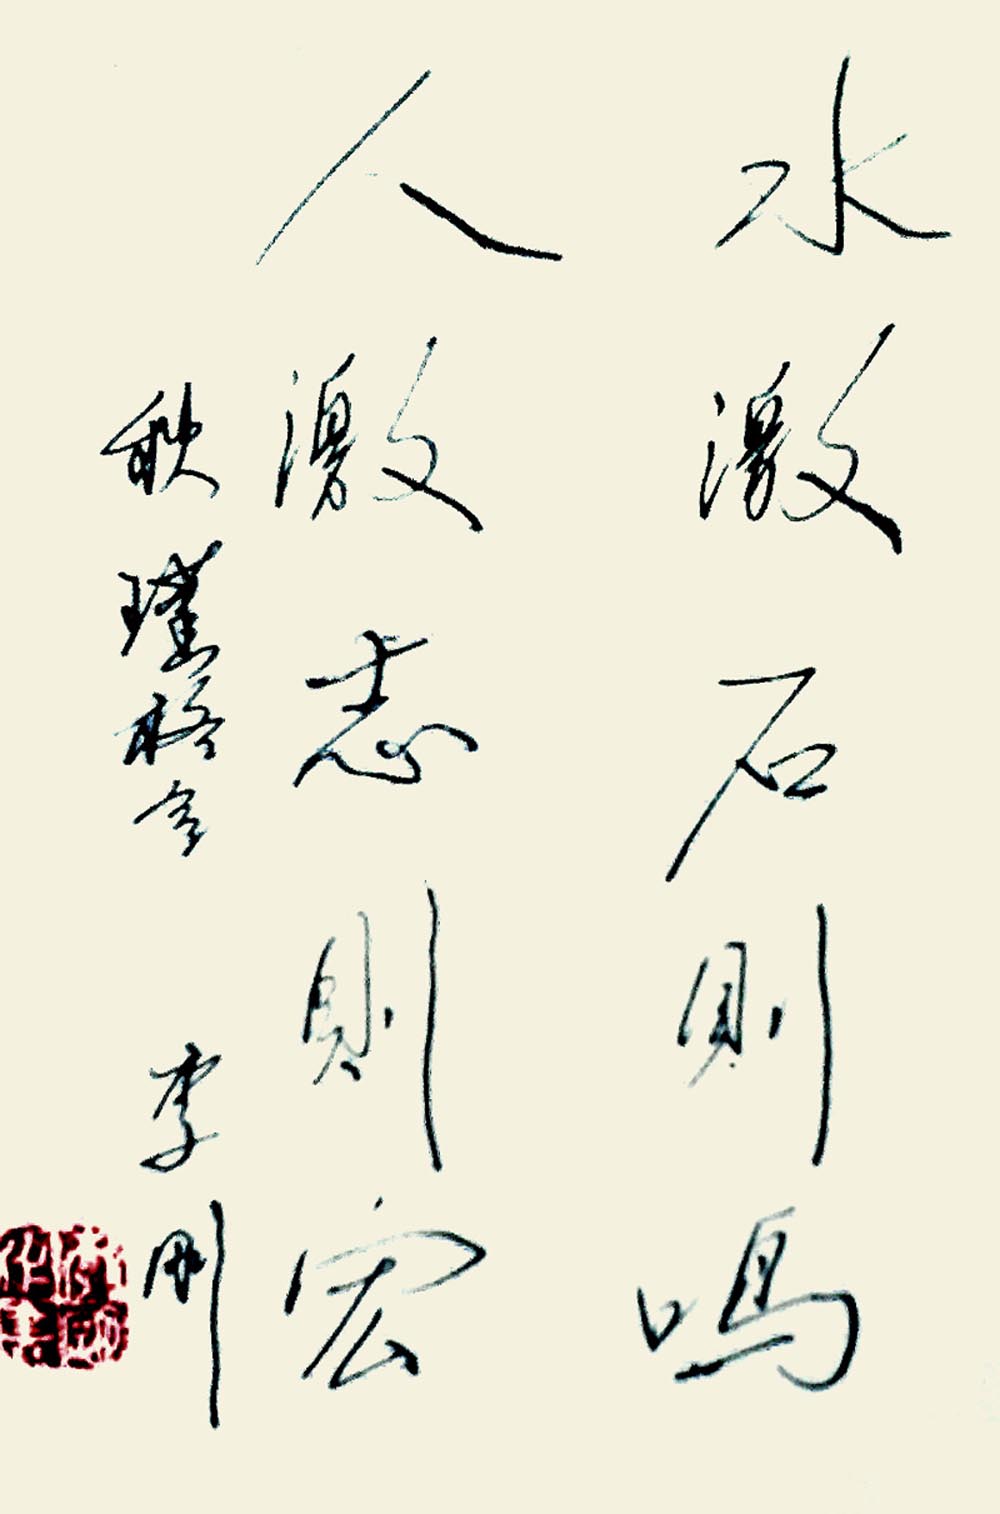 水激石則鳴
人激志則宏
秋瑾格言 李剛